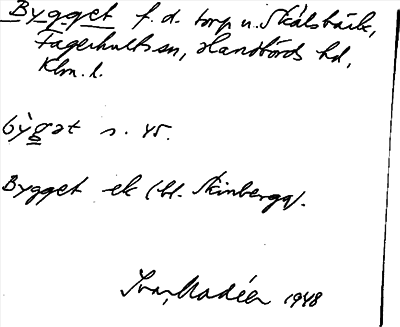 Bygget f.d. torp u. Skälsbäck,
Fagerhults sn, Handbörds hd,
Klm. l.
bỳgat n. 45.
Bygget ek (bl. Skinbergq).
Ivar Modéer 1948